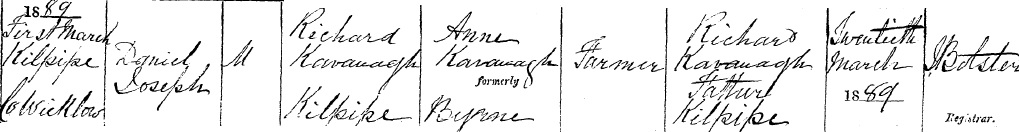 1889
First March
Kilpipe
Co Wicklow
Daniel
Joseph
M
Richard
Kavanagh
Kilpipe
Anne
Kavanagh
formerly
Byrne
Farmer
Richard
Kavanagh
Father
Kilpipe
Twentieth
March
1889
J Bolster
Registrar.